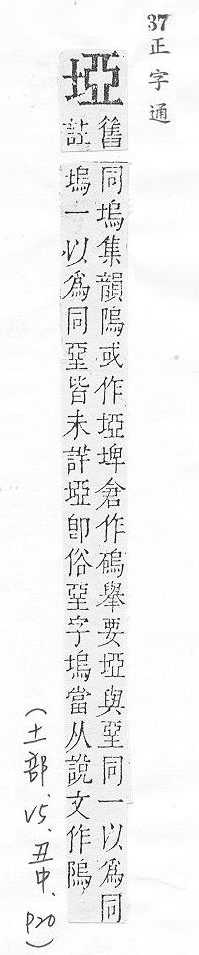 37正字通
埡
舊註
同塢集韻隖或作埡埤倉作䃖舉要埡與堊同一以爲同
塢一以爲同堊皆未詳埡卽俗堊字塢當从說文作隖
(土部.V5.丑中.P20)